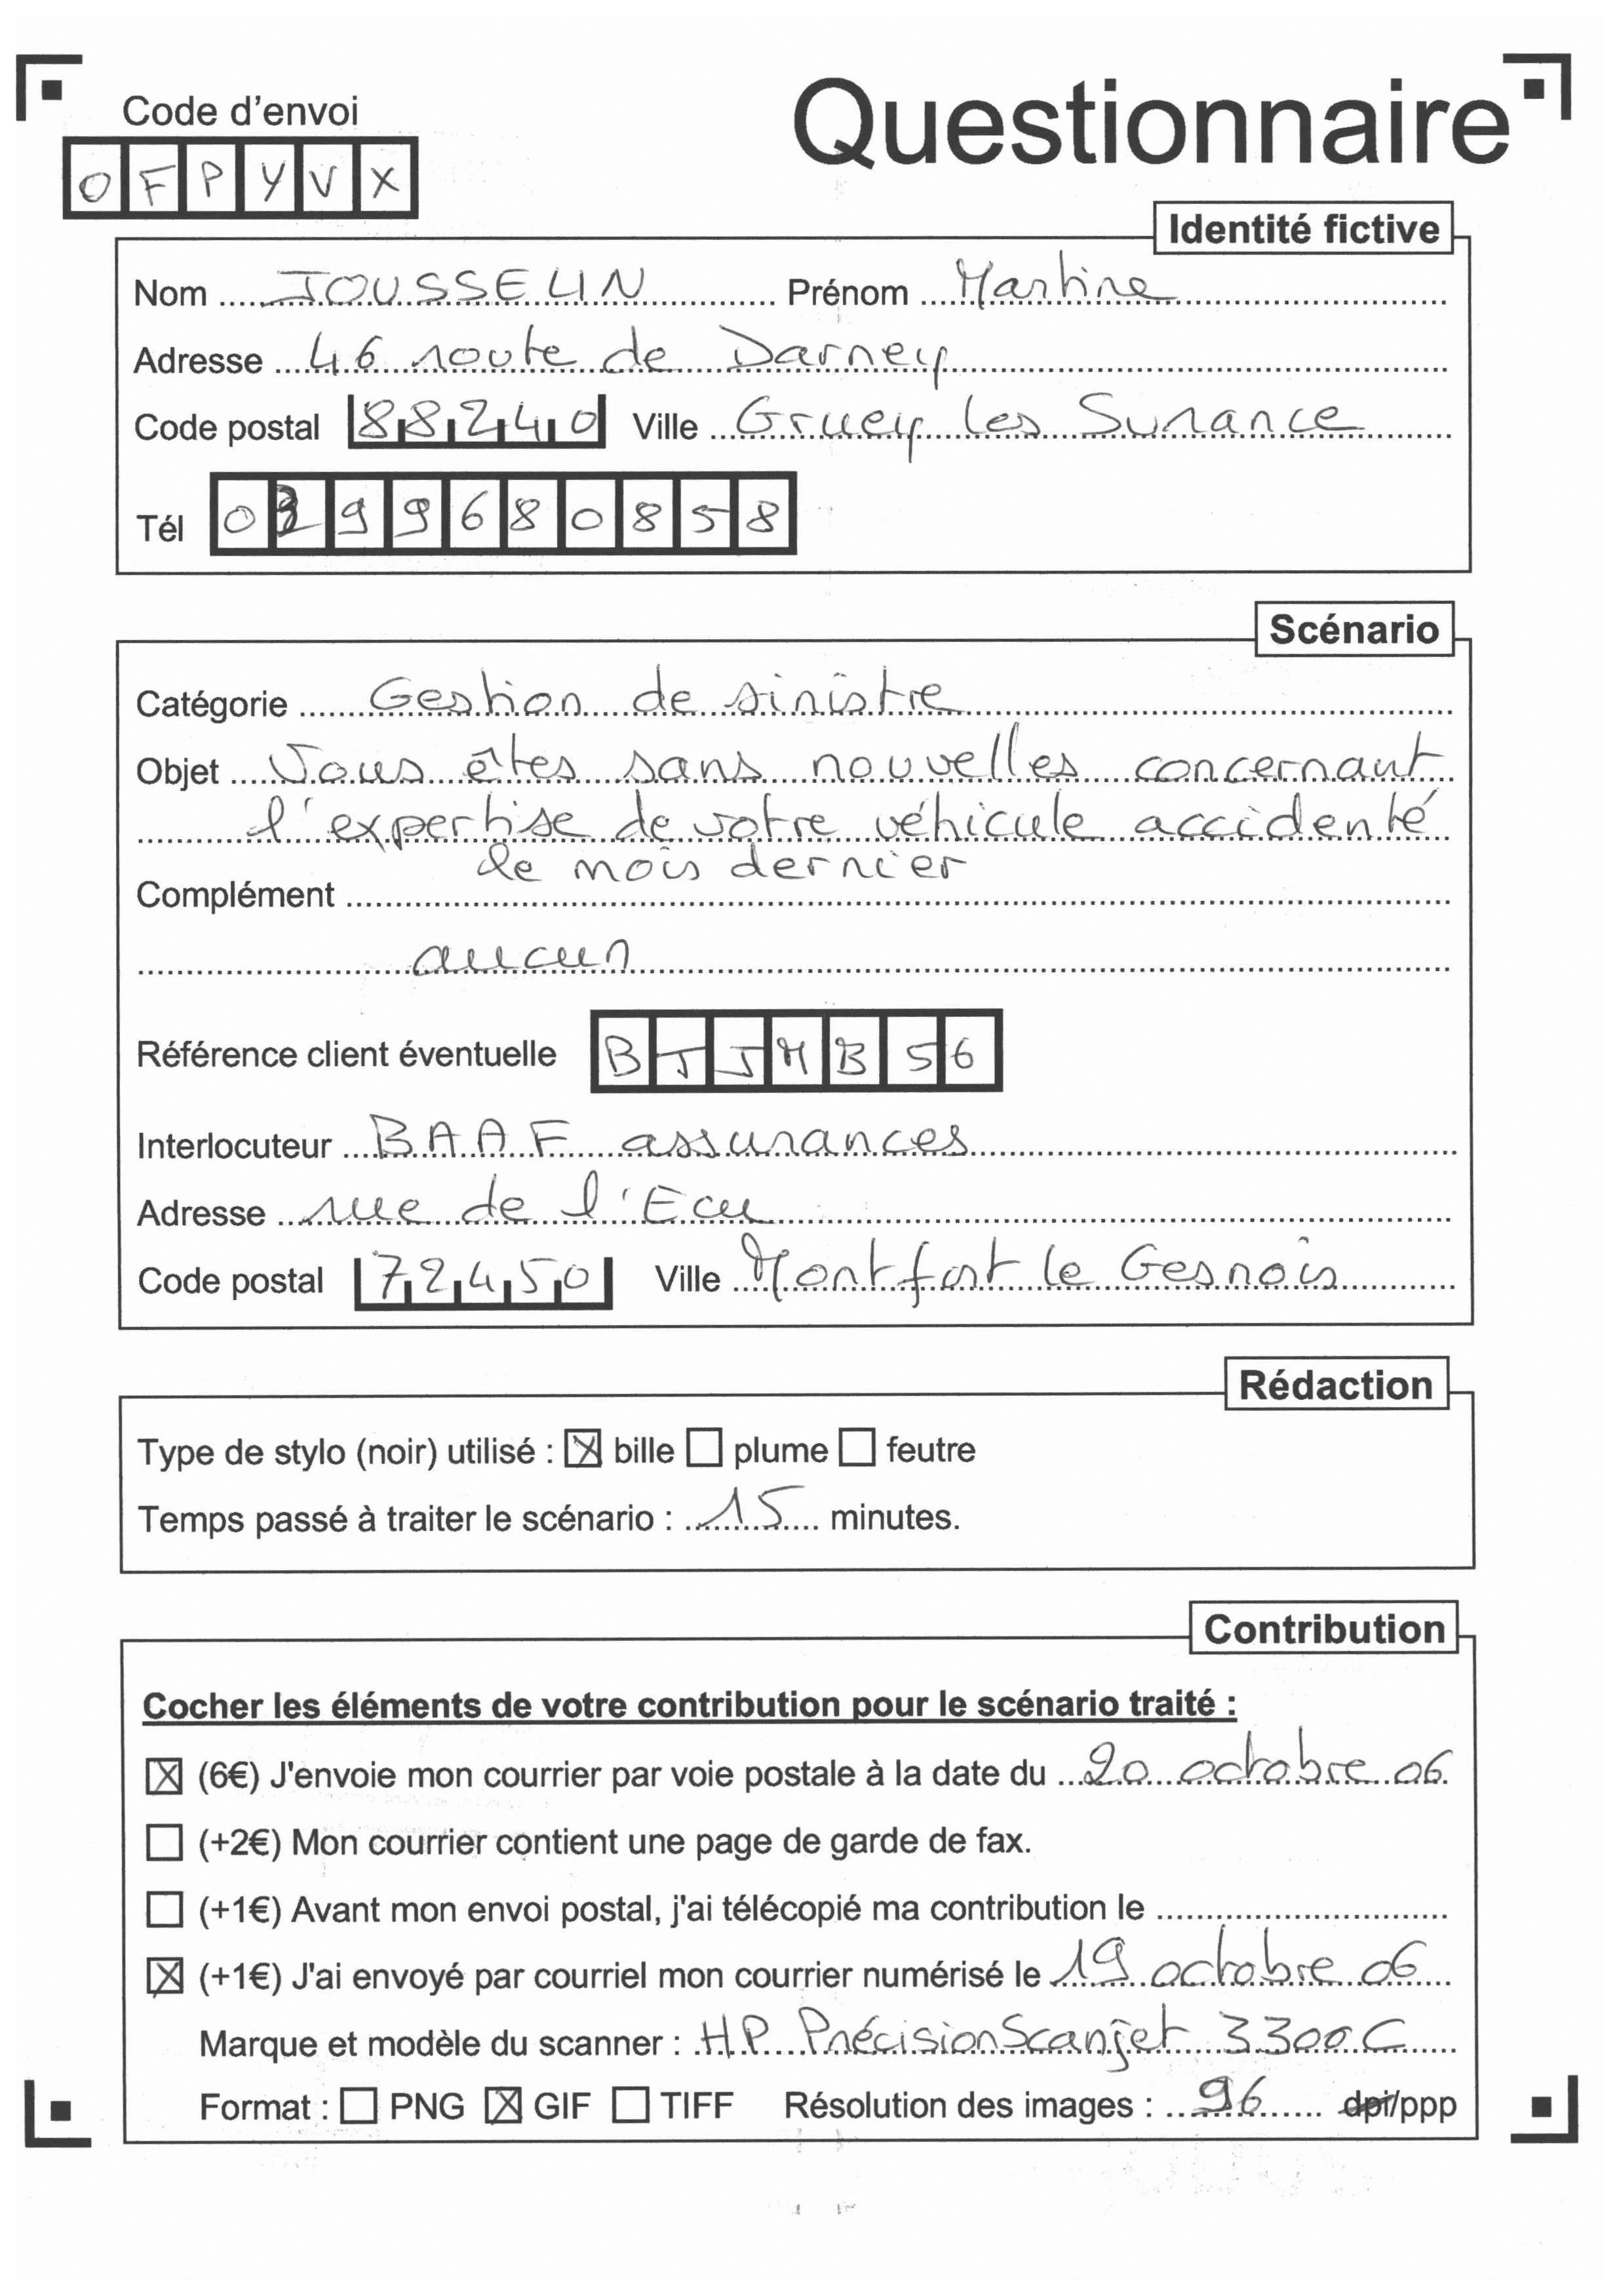 Questionnaire
Code d'envoi
OFPYVX
Identité fictive
Nom JOUSSELIN Prénom Martine
Adresse 46 route de Darney
Code postal 88240 Ville Gruey les Surance
Tél 0 99680858
Scénario
Catégorie Gestion de sinistre
Objet Vous êtes sans nouvelles concernant
l'expertise de votre véhicule accidenté
le mois dernier
Complément
aucun
Référence client éventuelle BTJMB56
Interlocuteur BAAF assurances
Adresse rue de l'Ecu
Code postal 72450 Ville Montfort le Gesnois
Rédaction
Type de stylo (noir) utilisé : ☒ bille ☐ plume ☐ feutre
Temps passé à traiter le scénario : 15 minutes.
Contribution
Cocher les éléments de votre contribution pour le scénario traité :
☒ (6€) J'envoie mon courrier par voie postale à la date du 20 octobre 06
☐ (+2€) Mon courrier contient une page de garde de fax.
☐ (+1€) Avant mon envoi postal, j'ai télécopié ma contribution le
☒ (+1€) J'ai envoyé par courriel mon courrier numérisé le 19 octobre 06
Marque et modèle du scanner : HP PrécisionScanjet 3300C
Format : ☐ PNG ☒ GIF ☐ TIFF Résolution des images : 96 dpi/ppp